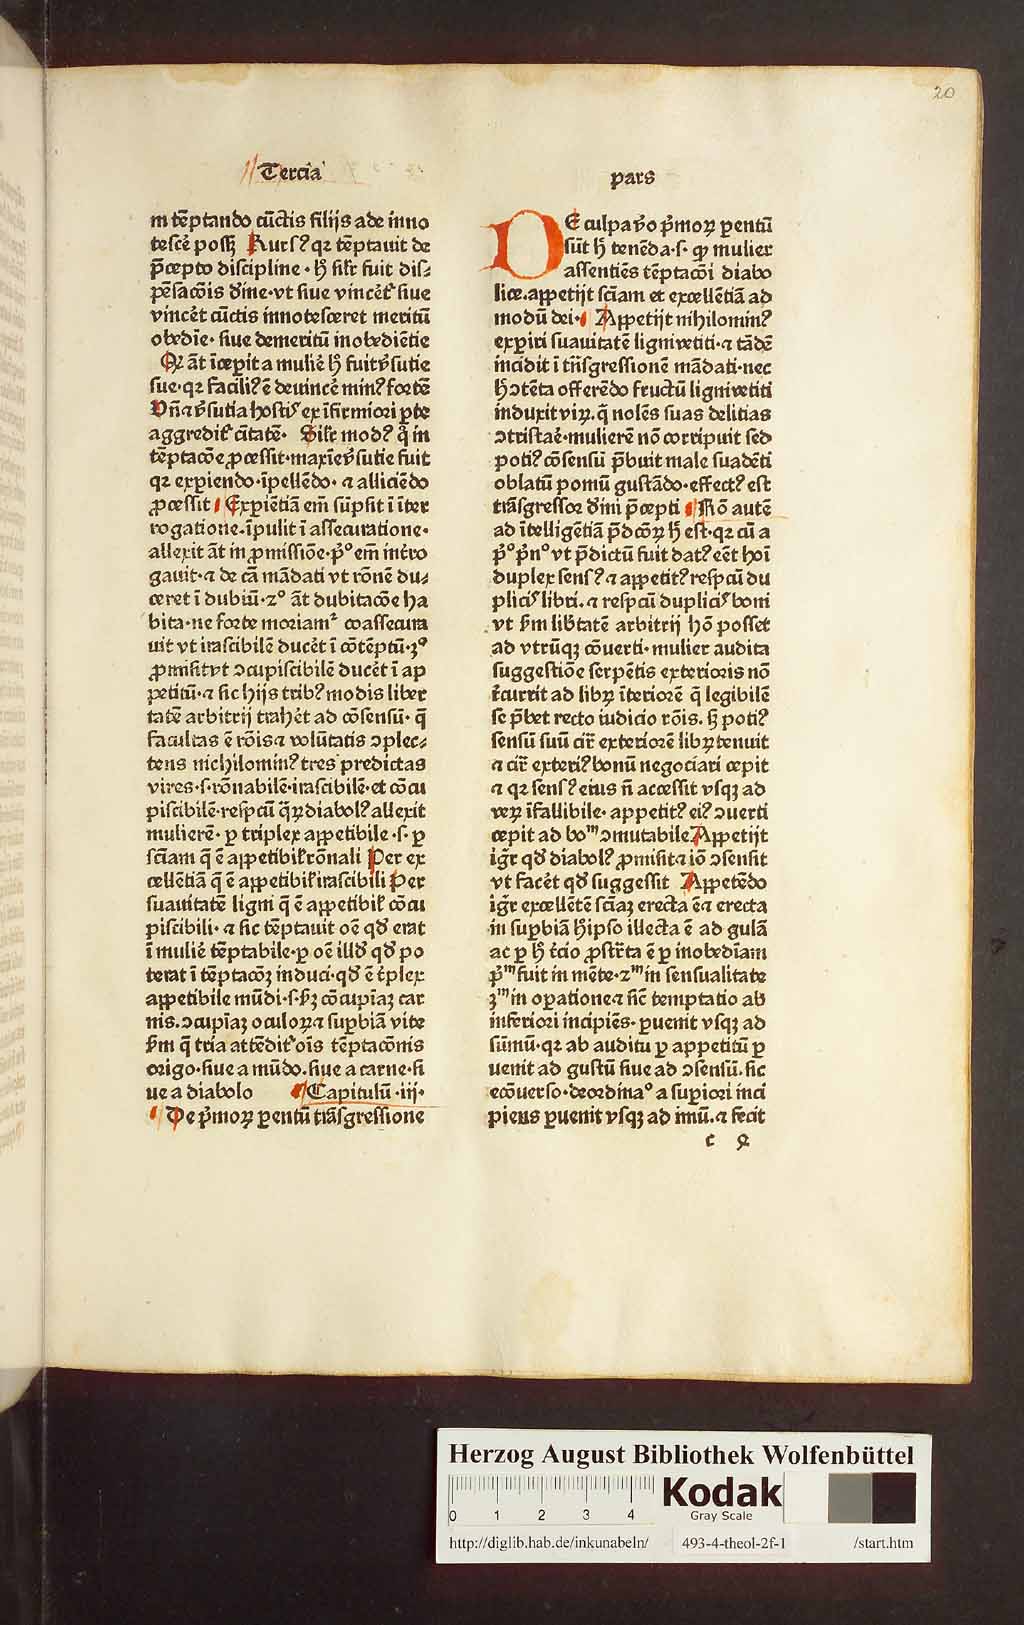 20
Tercia
pars
m tēptando cūctis filijs ade inno
tescē possꝫ Rursꝰ qꝛ tēptauit de
p̄cepto discipline · hͦ sil’r fuit dis⸗
pēsacōis dīne · vt siue vincēt’ siue
vincēt cūctis innotesceret meritū
obedīe · siue demeritū inobediētie
Qꝛ āt īcepit a muliē hͦ fuit v̓sutie
sue · qꝛ faciliꝰ ē deuincē minꝰ fortē
Vn̄ ⁊ v̓sutia hostis ex īfirmiori ꝑte
aggredit’ cītatē · Sil’r modꝰ q̇ in
tēptacōe ꝓcessit · maxīe v̓sutie fuit
qꝛ exꝑiendo · īpellēdo · ⁊ alliciēdo
ꝓcessit Exꝑiētiā em̄ sūpsit ī īter
rogatione · īpulit ī assecuratione ·
allexit āt in ꝓmissiōe · p̊ em̄ inťro
gauit · ⁊ de cā mādati vt rōnē du⸗
ceret ī dubiū · 2º āt dubitacōe ha
bita · ne forte moriamꝛ coassecura
uit vt irascibilē ducēt ī cōtēptū · ꝫº
ꝓmisit vt ↄcupiscibilē ducēt ī ap
petitū · ⁊ sic hijs tribꝰ modis liber
tatē arbitrij trahēt ad cōsensū · q̄
facultas ē rōis ⁊ volūtatis ↄplec⸗
tens nichilominꝰ tres predictas
vires · s · rōnabilē · irascibilē · et cōcu
piscibilē · respcū q̄ꝝ diabolꝰ allexit
mulierē · ꝑ triplex appetibile · s · ꝑ
sciam q̄ ē appetibil’ rōnali Per ex
cellētiā q̄ ē appetibil’ irascibili Per
suauitatē ligni q̄ ē appetibil’ cōcu
piscibili · ⁊ sic tēptauit oē qđ erat
ī muliē tēptabile · ꝑ oē illđ qđ po
terat ī tēptacōꝫ induci · qđ ē ťplex
appetibile mūdi · s · hꝫ cōcupīaꝫ car
nis . ↄcupīaꝫ oculoꝝ ⁊ suꝑbiā vite
hm̄ q̄ tria attēdit’ oīs tēptacōnis
origo · siue a mūdo . siue a carne · si
ue a diabolo Capitulū · iij ·
De p̓moꝝ ꝑentū trāsgressione
DE culpa v̓o p̓moꝝ ꝑentū
sūt hͦ tenēda · s · ꝙ mulier
assentiēs tēptacōi diabo
lice . appetijt sciam et excellētiā ad
modū dei · Appetijt nihilominꝰ
exꝑiri suauitatē ligni vetiti · ⁊ tādē
incidit ī trn̄sgressionē mādati · nec
hͦ ↄtēta offerēdo fructū ligni vetiti
induxit viꝝ . q̇ nolēs suas delitias
ↄtristaē · mulierē nō corripuit sed
potiꝰ cōsensū p̄buit male suadēti
oblatū pomū gustādo · effectꝰ est
trāsgressor dīni p̄cepti Rō autē
ad ītelligētiā p̄dcōꝝ hͦ est · qꝛ cū a
p̊ p̓nº vt p̄dictū fuit datꝰ eēt hoī
duplex sensꝰ ⁊ appetitꝰ respcū du
plicis libri . ⁊ respcū duplicis boni
vt hm̄ lib̓tatē arbitrij hō posset
ad vtrūqꝫ cōuerti · mulier audita
suggestiōe serpētis exterioris nō
r̄currit ad libꝝ īteriorē q̇ legibilē
se p̄bet recto iudicio rōis . sꝫ potiꝰ
sensū suū cir̄ exteriorē libꝝ tenuit
⁊ cir̄ exteriꝰ bonū negociari cepit
⁊ qꝛ sensꝰ eius n̄ accessit vsqꝫ ad
veꝝ īfallibile · appetitꝰ eiꝰ ↄuerti
cepit ad boᵐ ↄmutabile Appetijt
igr̄ qđ diabolꝰ ꝓmisit ⁊ iō ↄsensit
vt facēt qđ suggessit Appetēdo
igr̄ excellētē sciaꝫ erecta ē ⁊ erecta
in suꝑbiā hͦ ipso illecta ē ad gulā
ac ꝑ hͦ ťcio ꝓstr̄ta ē ꝑ inobedīam
p̓ᵐ fuit in mēte · 2ᵐ in sensualitate
ꝫᵐ in oꝑatione ⁊ sic̄ temptatio ab
inferiori incipiēs · ꝑuenit vsqꝫ ad
sūmū · qꝛ ab auditu ꝑ appetitū ꝑ
uenit ad gustū siue ad ↄsensū . sic
ecōuerso · deordinaº a suꝑiori inci
piens ꝑuenit vsqꝫ ad imū . ⁊ fecit
c 2
Herzog August Bibliothek Wolfenbüttel
0 1 2 3 4
Kodak
Gray Scale
http://diglib.hab.de/inkunabeln/ 493-4-theol-2f-1 /start.htm